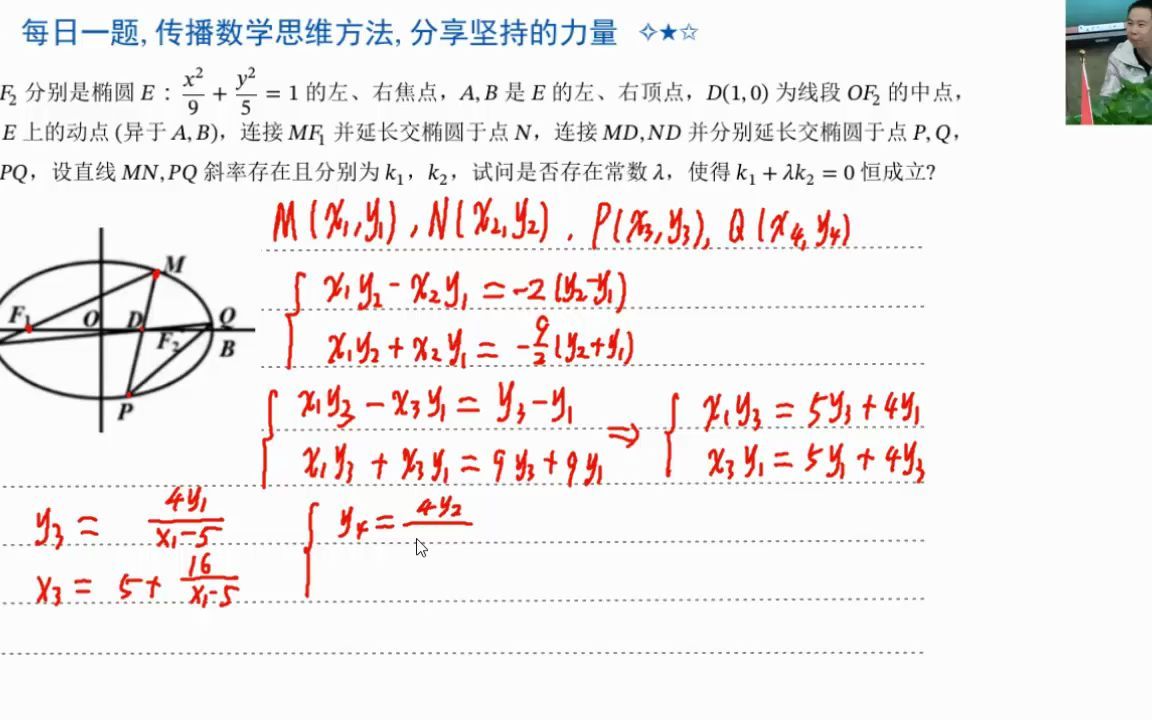 每日一题, 传播数学思维方法, 分享坚持的力量 ✧★☆
F₂ 分别是椭圆 E : x²/9 + y²/5 = 1 的左、右焦点，A, B 是 E 的左、右顶点，D(1, 0) 为线段 OF₂ 的中点，
E 上的动点 (异于 A, B)，连接 MF₁ 并延长交椭圆于点 N，连接 MD, ND 并分别延长交椭圆于点 P, Q，
PQ，设直线 MN, PQ 斜率存在且分别为 k₁，k₂，试问是否存在常数 λ，使得 k₁ + λk₂ = 0 恒成立?
M(x₁,y₁), N(x₂,y₂). P(x₃,y₃), Q(x₄,y₄)
M
F₁ O D Q
F₂ B
P
x₁y₂ - x₂y₁ = -2(y₂-y₁)
x₁y₂ + x₂y₁ = -9/2(y₂+y₁)
x₁y₃ - x₃y₁ = y₃ - y₁ ⇒ x₁y₃ = 5y₃ + 4y₁
x₁y₃ + x₃y₁ = 9y₃ + 9y₁ x₃y₁ = 5y₁ + 4y₃
y₃ = 4y₁/(x₁-5) y₄ = 4y₂
x₃ = 5 + 16/(x₁-5)